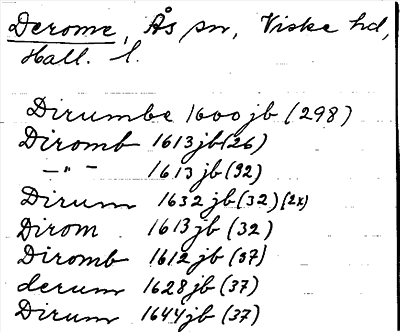 Derome, Ås sn, Viske hd,
Hall. l.
Dirumbe 1600 jb (298)
Diromb 1613 jb (26)
—"— 1613 jb (92)
Dirum 1632 jb (32) (2x)
Dirom 1613 jb (32)
Diromb 1612 jb (37)
derum 1628 jb (37)
Dirum 1644 jb (37)